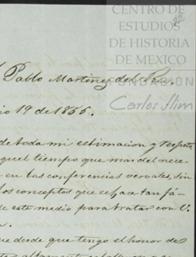 CENTRO DE
ESTUDIOS
DE HISTORIA
DE MEXICO
FUNDACIÓN
Carlos Slim
Pablo Martinez del Rio
io 19 de 1866.
de toda mi estimacion y respeto
quel tiempo que mas del nece
en las conferencias verbales, sin
los conceptos que
de este medio para tratar con U.
ue desde que tengo el honor de